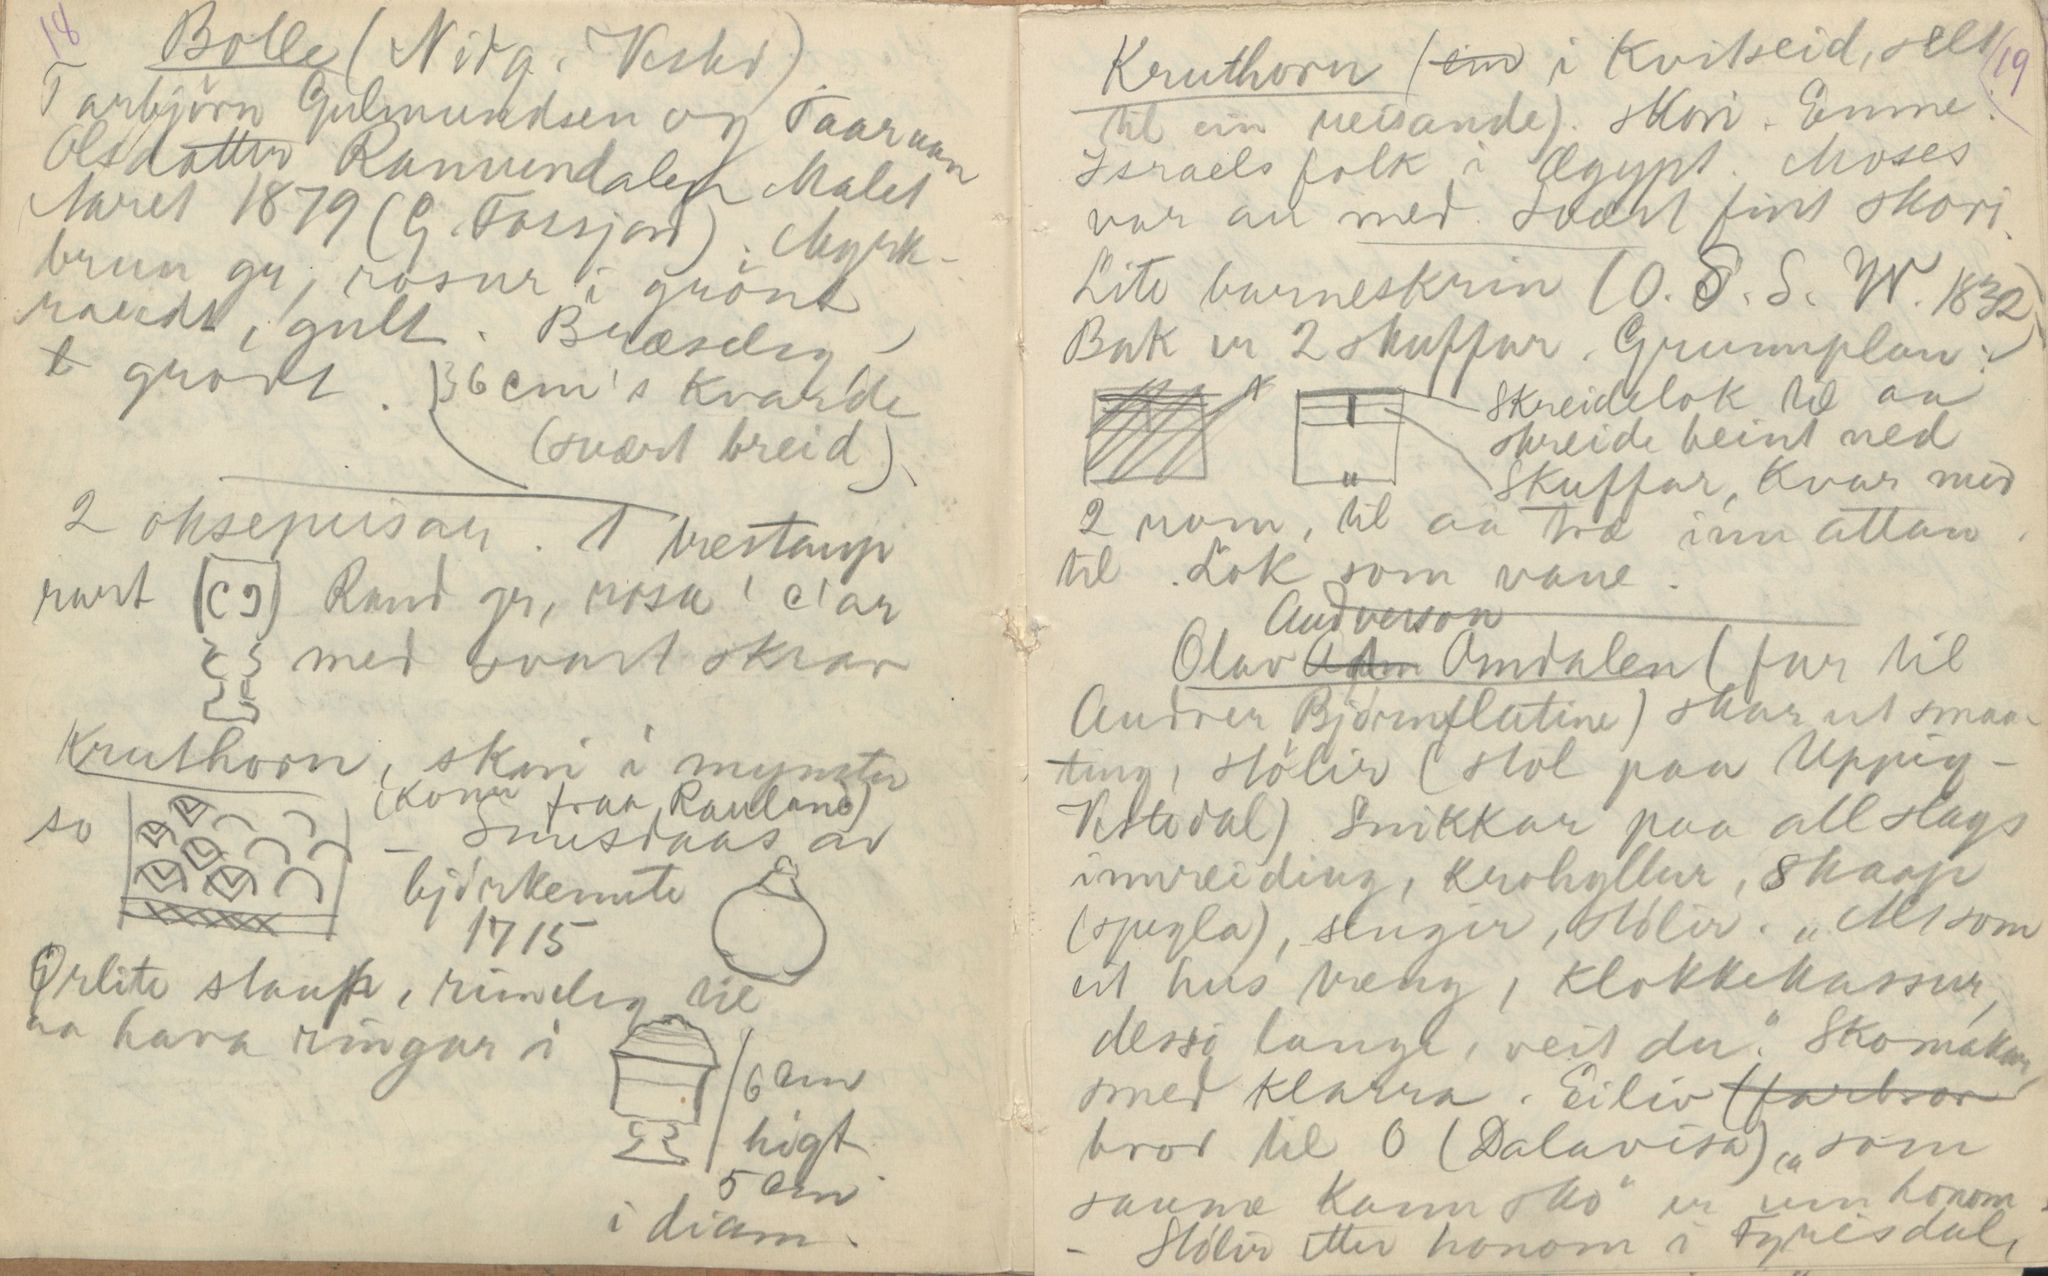 18
Bolle (Nidg. i Vestd)
Tarbjörn Gulmundsen og Taaran
Olsdatter Ramundalen Malet
Aaret 1879 (G. Fossjord). Myrk-
brun gr, rosur i grönt
raudt, gult. Bræsdeg,
grödt. 36 cm's kvarde
(svært breid).
2 oksepeisar. 1 trestaup
rart Rand gr, rosa 'c'ar
med svart skrav
Kruthorn, skori i mynster
(Kona fraa Rauland)
so - Snusdaas av
björkenute
1715
Örlite staup, rimeleg til
aa hava ringar i
6 cm
högt
5 cm
i diam.
19
Kruthorn (i Kvitseid, selt
til ein reisande). Skori. Emne:
Israels folk i Ægypt. Moses
var au med. Svært fint skori.
Lite barneskrin (O. S. S. W. 1832)
Bak er 2 skuffur. Grunnplan:
Skreidelok til aa
skreide beint ned
Skuffar, kvar med
2 rom, til aa tra inn attan
til. Lok som vane.
Andverson
Olav Omdalen (far til
Andver Björnflatine) skar ut smaa-
ting, stölir (stol paa Uppig-
Vestdal) Snikkar paa all slags
innreiding, krohyllur, skaap
(spegla), sengir, stölir. "Alt som
eit hus træng, klokkekassur,
desse lange, veit du." Skomakar,
smed klarra. Eiliv (farbror
bror til O (Dalavisa) "som
saume kann sko" er um honom
- Stölir etter honom i Fyrisdal,